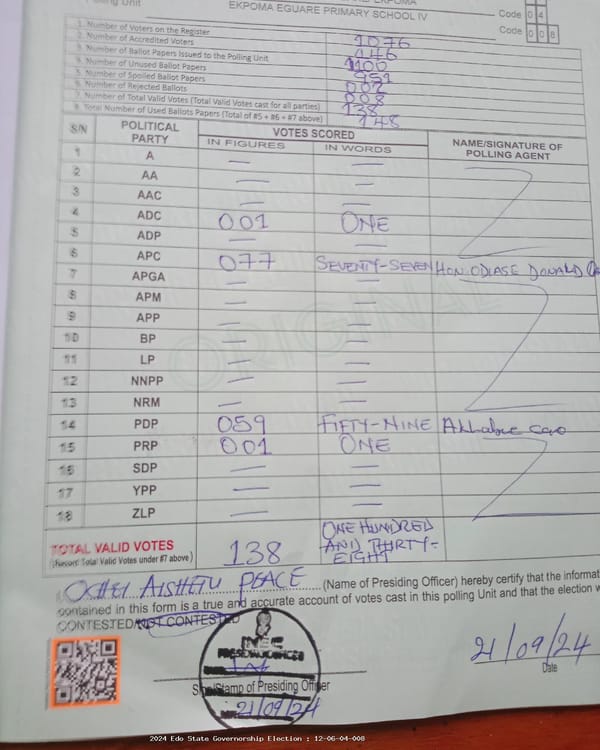 EKPOMA EGUARE PRIMARY SCHOOL IV
Code 0 4
Code 0 0 8
1. Number of Voters on the Register 1076
2. Number of Accredited Voters 146
3. Number of Ballot Papers Issued to the Polling Unit 1100
4. Number of Unused Ballot Papers 951
5. Number of Spoiled Ballot Papers 002
6. Number of Rejected Ballots 008
7. Number of Total Valid Votes (Total Valid Votes cast for all parties) 138
8. Total Number of Used Ballots Papers (Total of #5 + #6 + #7 above) 148
S/N POLITICAL PARTY VOTES SCORED NAME/SIGNATURE OF POLLING AGENT
IN FIGURES IN WORDS
1 A — —
2 AA — —
3 AAC — —
4 ADC 001 ONE
5 ADP — —
6 APC 077 SEVENTY-SEVEN HON. ODIASE DONALD
7 APGA — —
8 APM — —
9 APP — —
10 BP — —
11 LP — —
12 NNPP — —
13 NRM — —
14 PDP 059 FIFTY-NINE
15 PRP 001 ONE
16 SDP — —
17 YPP — —
18 ZLP — —
TOTAL VALID VOTES 138 ONE HUNDRED AND THIRTY-EIGHT
(Record Total Valid Votes under #7 above)
I, OCHEI AISHETU PEACE (Name of Presiding Officer) hereby certify that the informat
contained in this form is a true and accurate account of votes cast in this polling Unit and that the election w
CONTESTED/NOT CONTESTED
ORIGINAL
INEC
21/09/24
Date
Sign/Stamp of Presiding Officer
21/09/24
2024 Edo State Governorship Election : 12-06-04-008